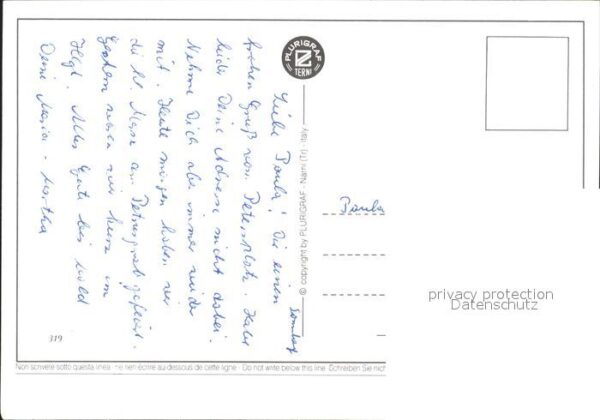 Liebe Paula! Dir einen
frohen Gruß vom Petersplatz. Habe
leider Deine Adresse nicht dabei.
Nehme Dich aber immer wieder
mit. Heute morgen haben wir
die hl. Messe am Petrusgrab gefeiert.
Gestern waren wir kurz im
Hlgt. Alles Gute bis bald
Deine Maria-Martha
319
PLURIGRAF
TERNI
© copyright by PLURIGRAF - Narni (Tr) - Italy
Paula
privacy protection
Datenschutz
Non scrivere sotto questa linea - ne rien écrire au-dessous de cette ligne - Do not write below this line - Schreiben Sie nicht